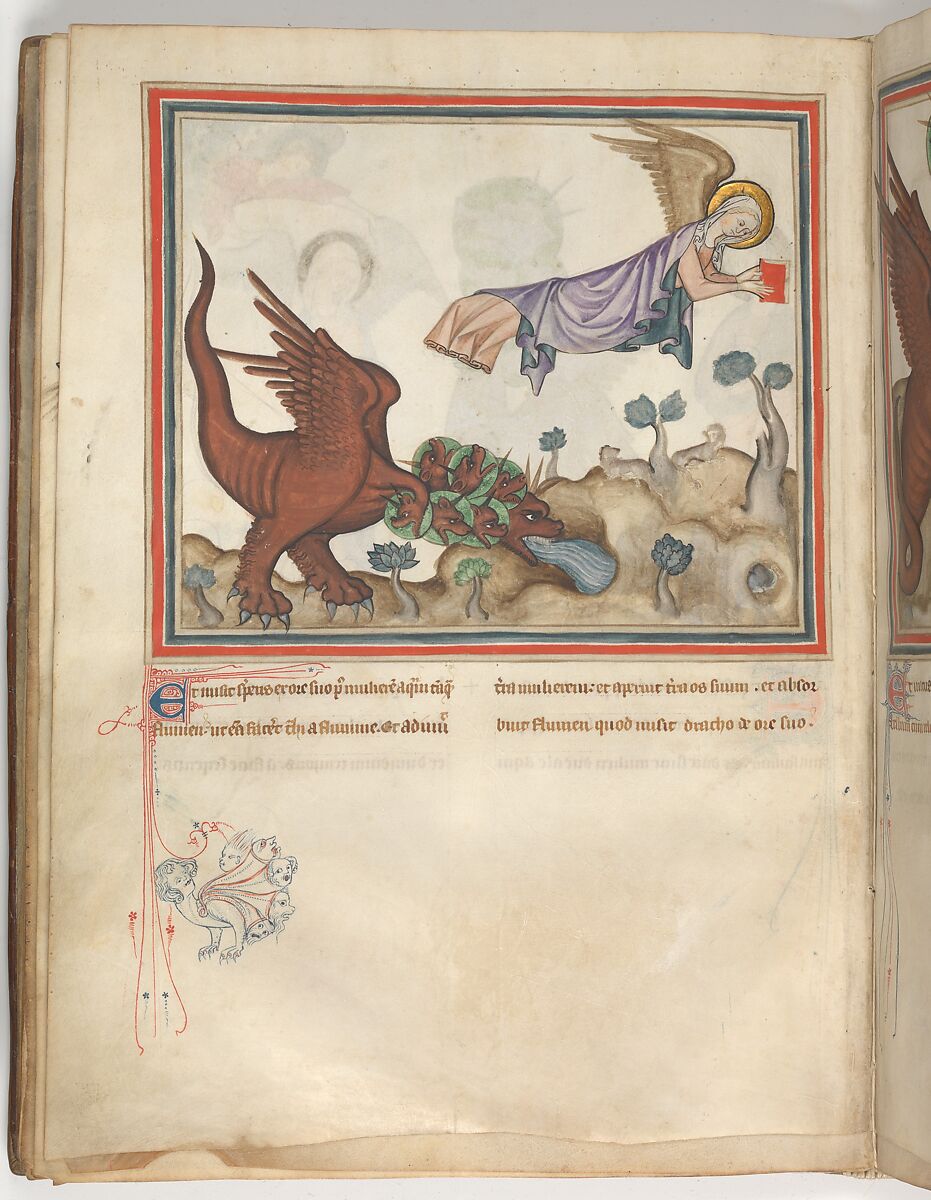 Et misit s̕pens ex ore suo p̕ mulierē aq̄m tāq̄
flumen. ut eā facet̕ t̕hi a flumine. Et adiuuit
t̕ra mulierem: et aperuit t̕ra os suum . et absor
buit flumen quod misit dracho de ore suo.